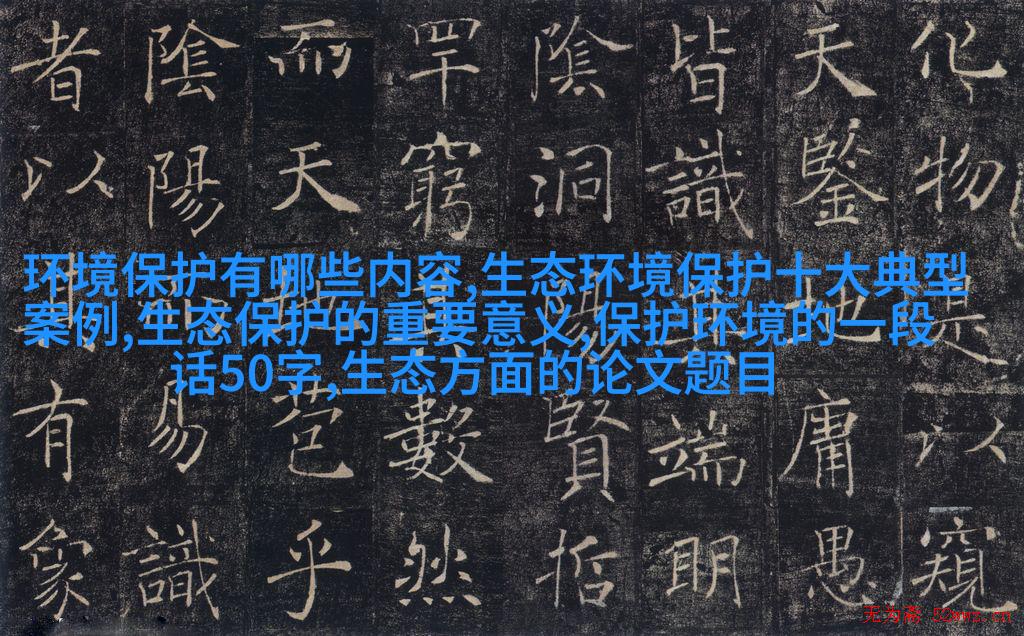 化物是以窺
天鑒地庸愚
皆識其端明
陰洞陽賢哲
罕窮其數然
而天地苞乎
陰陽易識
者以其有象
环境保护有哪些内容,生态环境保护十大典型
案例,生态保护的重要意义,保护环境的一段
话50字,生态方面的论文题目
无为斋 52wwz.cn